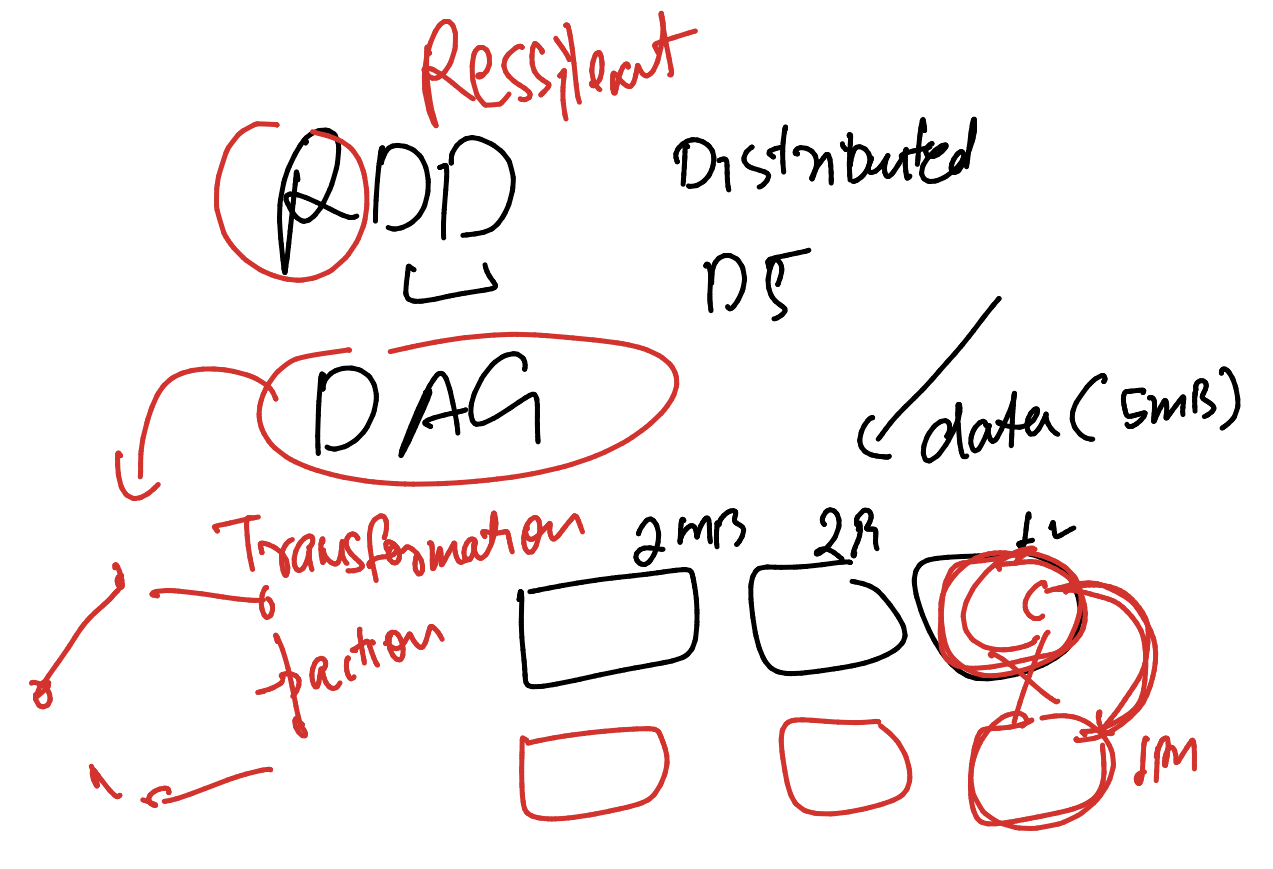 Ressilent
RDD
Distributed
DS
DAG
data (5mB)
Transformation
2mB
action
1M